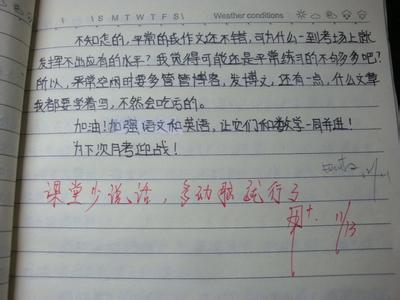 S M T W T F S
Weather conditions
不知怎的，平常的我作文还不错，可为什么一到考场上就
发挥不出应有的水平？我觉得可能还是平常练习的不够多吧？
所以，果常空闲时要多管管博客，发博文，还有一点，什么文章
我都要学着写，不然会吃亏的。
加油！加强语文和英语，让它们和数学一同并进！
为下次月考迎战！
课堂少说话，多动脑就行了
11/13